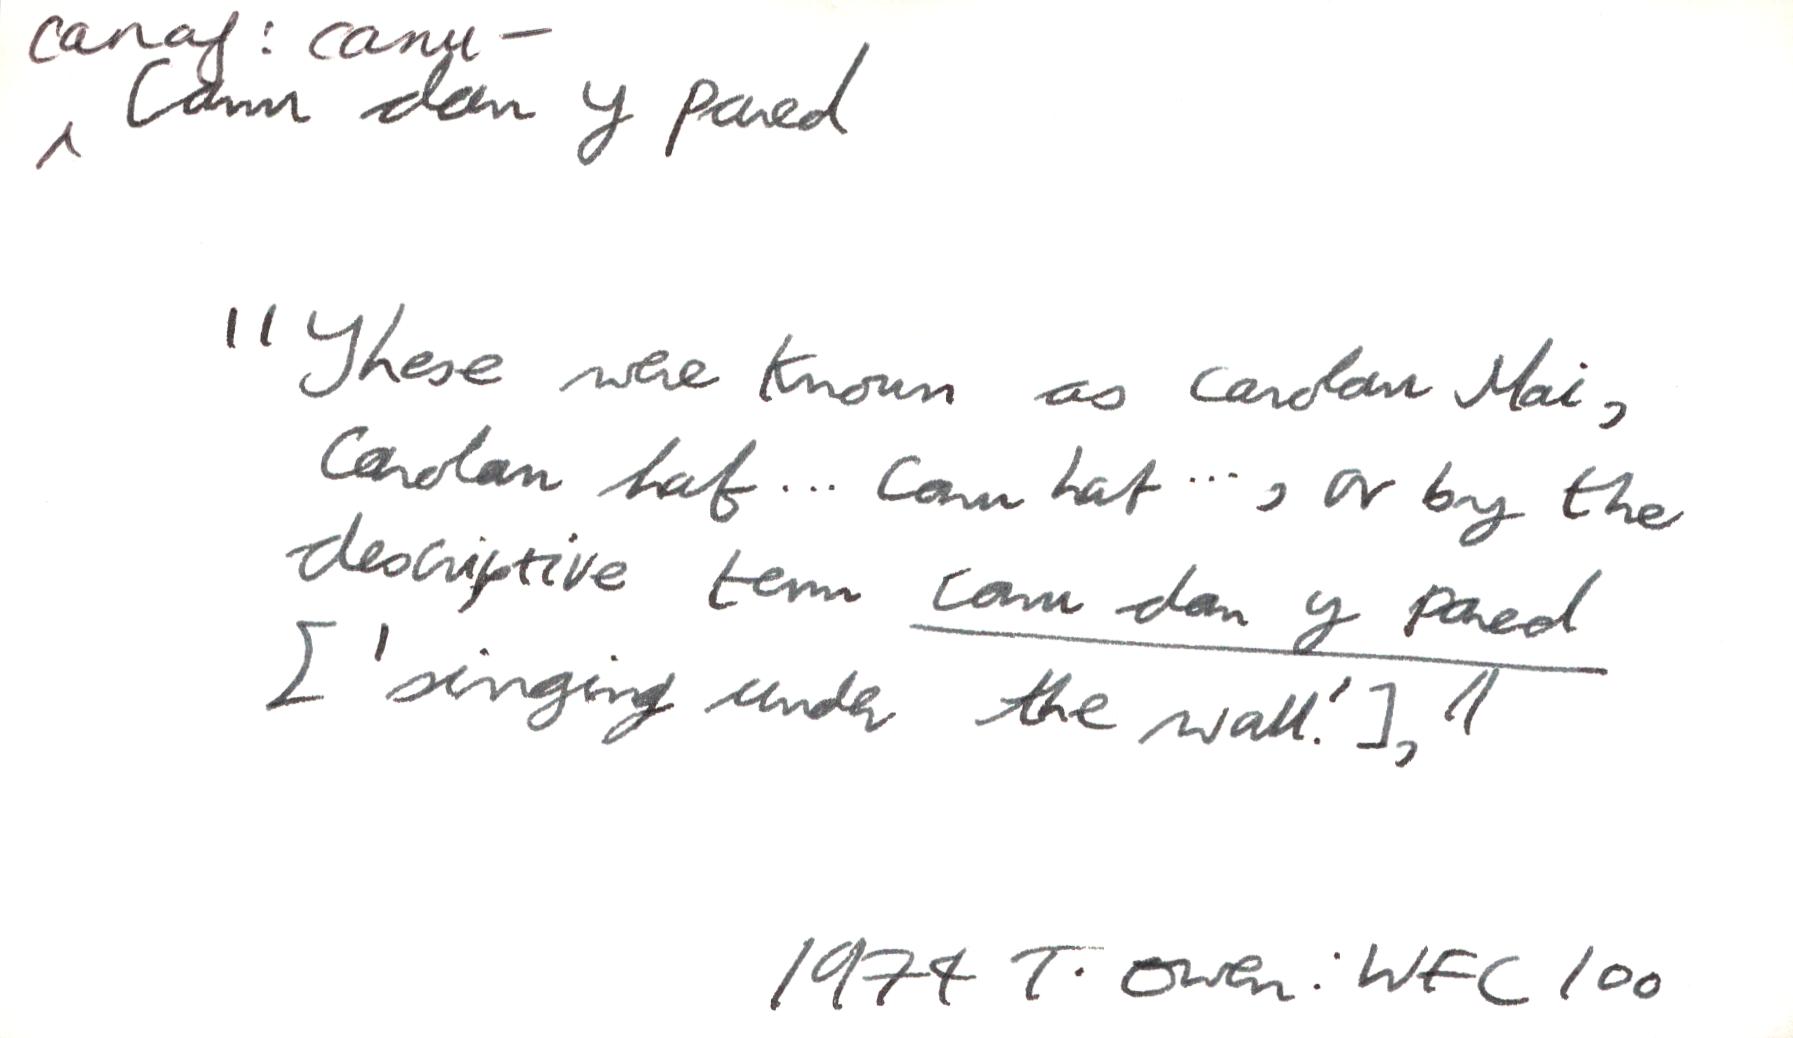 canaf: canu–
^ Canu dan y pared
"These were known as carolau Mai,
Carolau haf... Canu haf..., or by the
descriptive term canu dan y pared
['singing under the wall.'],"
1974 T. Owen: WFC 100